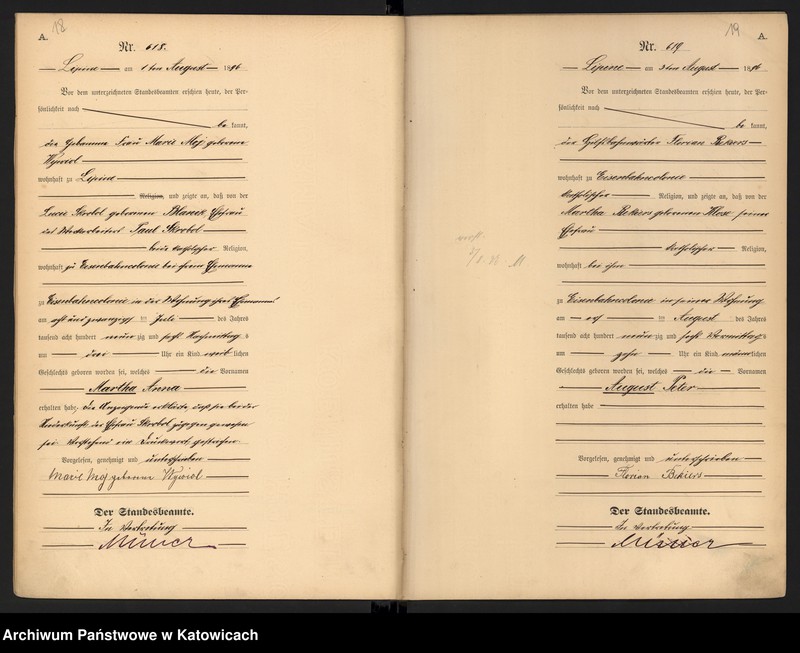 18
A.
Nr. 618.
Lipine am 1ten August 1896
Vor dem unterzeichneten Standesbeamten erschien heute, der Per-
sönlichkeit nach
be kannt,
die Hebamme Frau Marie Moj geborene
Wywiol
wohnhaft zu Lipine
Religion, und zeigte an, daß von der
Lucie Skrobol geborenen Blanek Ehefrau
des Paul Skrobol
beide katholischer Religion,
wohnhaft zu Eisenbahncolonie bei ihrem Ehemanne
zu Eisenbahncolonie in der Wohnung ihres Ehemannes
am acht und zwanzigsten Juli des Jahres
tausend acht hundert neunzig und sechs Nachmittags
um drei Uhr ein Kind weiblichen
Geschlechts geboren worden sei, welches die Vornamen
Martha Anna
erhalten habe. Die Anzeigende erklärte, daß sie bei der
Niederkunft der Ehefrau Skrobol zugegen gewesen
sei. Vorstehend ein Druckwort gestrichen.
Vorgelesen, genehmigt und unterschrieben
Marie Moj geborene Wywiol
Der Standesbeamte.
In Vertretung
19
A.
Nr. 619
Lipine am 3ten August 1896
Vor dem unterzeichneten Standesbeamten erschien heute, der Per-
sönlichkeit nach
be kannt,
der Florian Bekiers
wohnhaft zu Eisenbahncolonie
katholischer Religion, und zeigte an, daß von der
Martha Bekiers geborenen seiner
Ehefrau
katholischer Religion,
wohnhaft bei ihm
zu Eisenbahncolonie in seiner Wohnung
am ersten August des Jahres
tausend acht hundert neunzig und sechs Vormittags
um zehn Uhr ein Kind männlichen
Geschlechts geboren worden sei, welches die Vornamen
August Peter
erhalten habe
Vorgelesen, genehmigt und unterschrieben
Florian Bekiers
Der Standesbeamte.
In Vertretung
Archiwum Państwowe w Katowicach